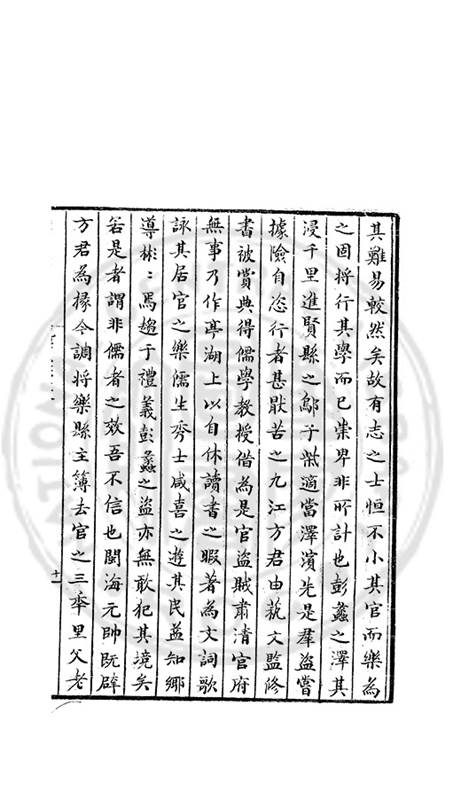 其難易較然矣故有志之士恒不小其官而樂為
之固將行其學而已崇卑非所計也彭蠡之澤其
浸千里進賢縣之鄔子柴適當澤濱先是羣盜嘗
據險自恣行者甚猒苦之九江方君由藝文監修
書被賞典得儒學教授借為是官盜賊肅清官府
無事乃作亭湖上以自休讀書之暇著為文詞歌
詠其居官之樂儒生秀士咸喜之遊其民益知鄉
導彬〻焉趨于禮義彭蠡之盜亦無敢犯其境矣
若是者謂非儒者之效吾不信也閩海元帥既辟
方君為掾令調將樂縣主簿去官之三年里父老
十一